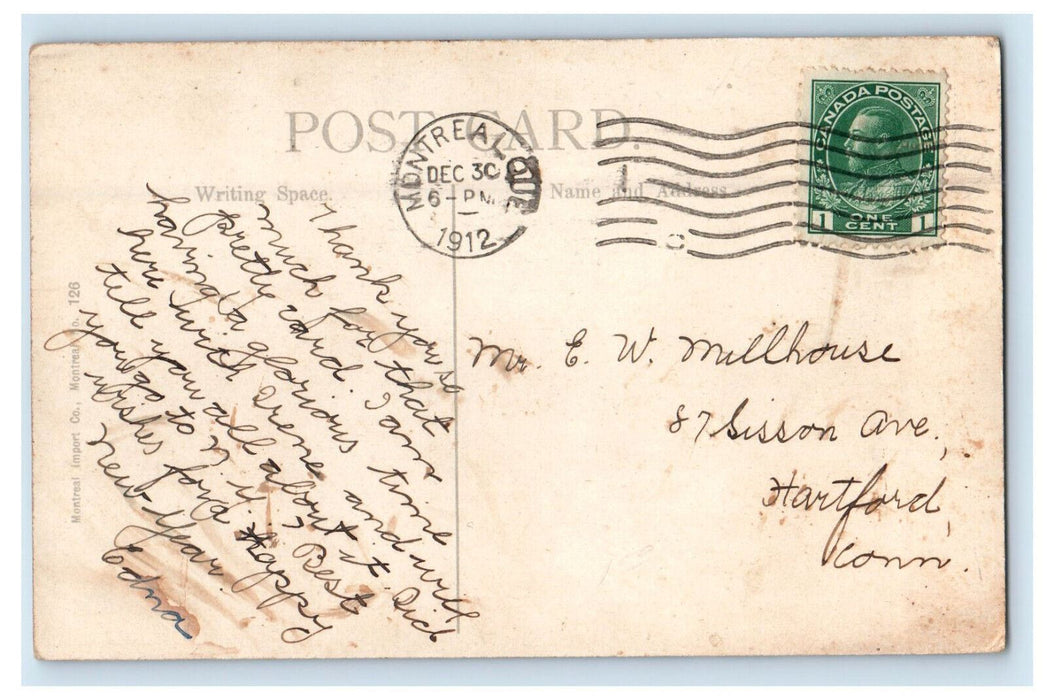 POST CARD.
MONTREAL QUE
DEC 30
6 - PM
1912
CANADA POSTAGE
1 ONE CENT 1
Writing Space.
Name and Address
Montreal Import Co., Montreal No. 126
Thank you so
much for that
pretty card. I am
having a glorious time
here with Irene and will
tell you all about it. Did
you go to N.Y.? Best
wishes for a Happy
New-Year.
Edna
Mr. E. W. Millhouse
87 Sisson Ave.,
Hartford,
Conn.